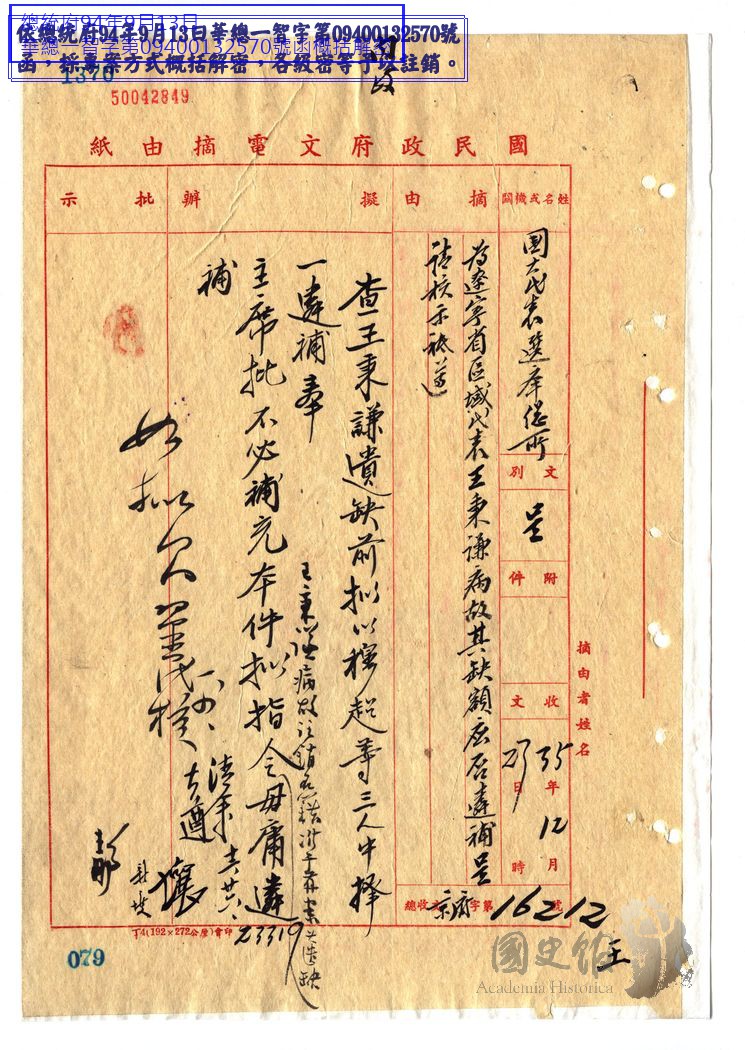 總統府94年9月13日
華總一智字第09400132570號函概括解密
依總統府94年9月13日華總一智字第09400132570號
函，採專案方式概括解密，各級密等予以註銷。
1370
50042849
國民政府文電摘由紙
姓名或機關
摘由
擬辦
批示
國大代表選舉總所
文別
呈
附件
收文
35年12月27日時
總收文京府字第16212號
摘由者姓名
為遼寧省區域代表王秉謙病故其缺額應否遞補呈
請核示祗遵
查王秉謙遺缺前擬以穆超等三人中擇
一遞補奉
主席批不必補充本件擬指令毋庸遞
補
如擬
23319
丁4(192×272公厘)會印
079
國史館
Academia Historica
王